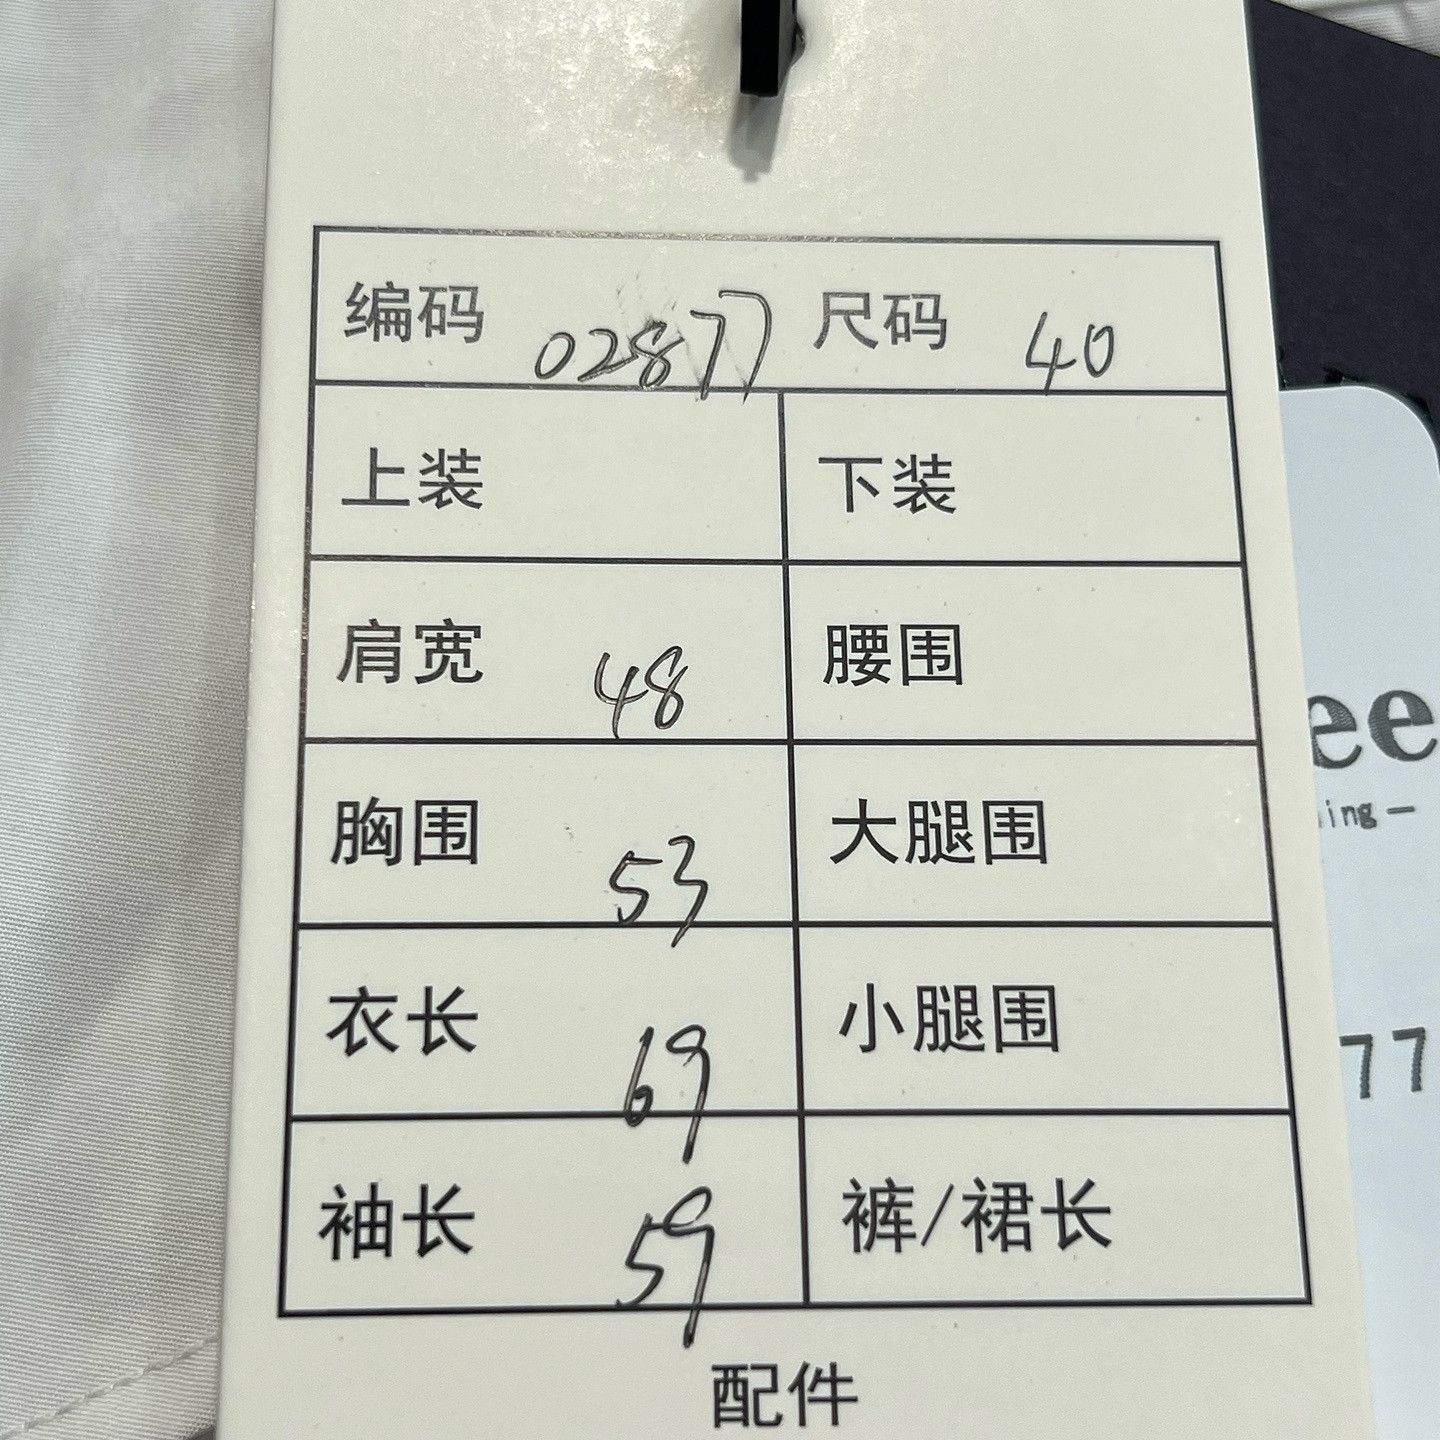 编码 02877 尺码 40
上装 下装
肩宽 48 腰围
胸围 53 大腿围
衣长 69 小腿围
袖长 59 裤/裙长
配件
ee
ing-
77